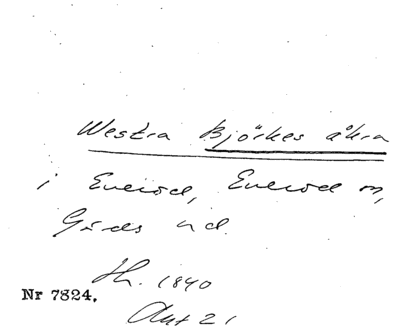 Westra Björkes åkra
i Everöd, Everöd sn,
Gärds hd.
Th. 1840
Nr 7824.
Akt 21